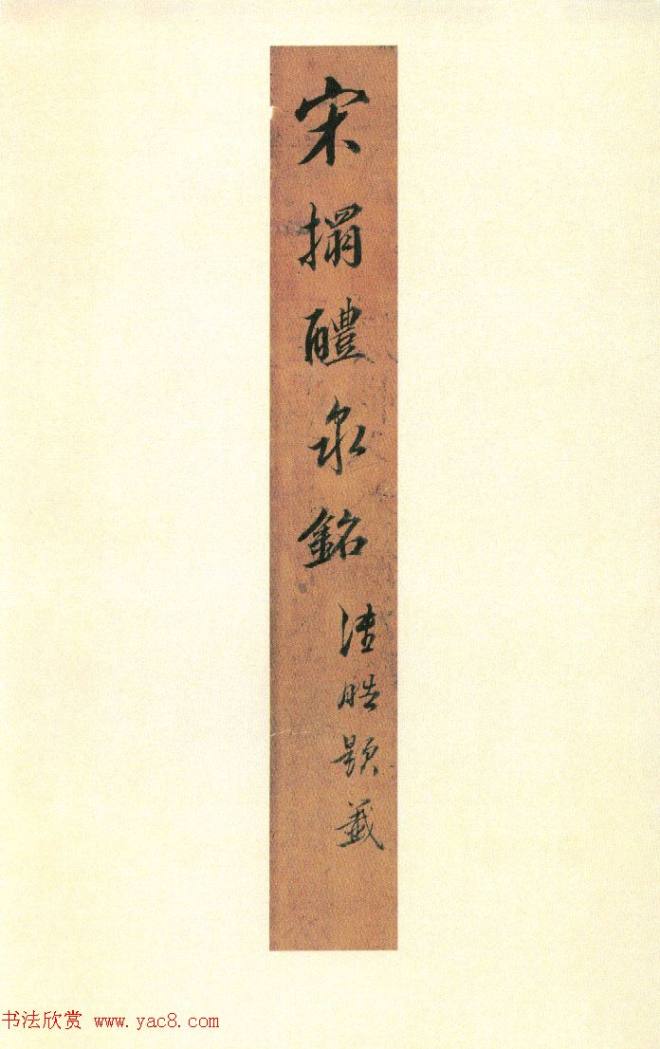 宋搨醴泉銘
晧題籤
书法欣赏 www.yac8.com